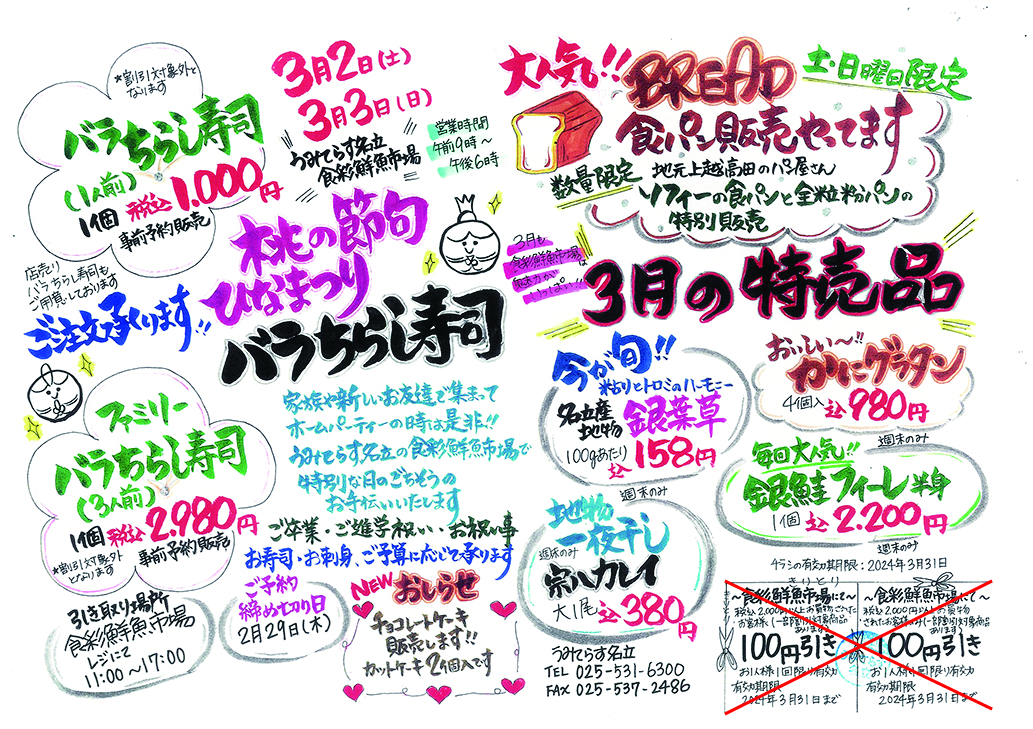 ★割引対象外と
なります
バラちらし寿司
(1人前)
1個 税込 1,000円
事前予約販売
店売り
バラちらし寿司も
ご用意しております
ご注文承ります!!
3月2日(土)
3月3日(日)
うみてらす名立
食彩鮮魚市場
営業時間
午前9時〜
午後6時
桃の節句
ひなまつり
バラちらし寿司
ファミリー
バラちらし寿司
(3人前)
1個 税込 2,980円
★割引対象外
となります
事前予約販売
引き取り場所
食彩鮮魚市場
レジにて
11:00〜17:00
家族や新しいお友達で集まって
ホームパーティーの時は是非!!
うみてらす名立の食彩鮮魚市場で
特別な日のごちそうの
お手伝いいたします
ご卒業・ご進学祝い・お祝い事
お寿司・お刺身、ご予算に応じて承ります
ご予約
締め切り日
2月29日(木)
NEW おしらせ
チョコレートケーキ
販売します!!
カットケーキ2個入です
大人気!!
BREAD
土・日曜日限定
食パン販売やってます
数量限定
地元上越高田のパン屋さん
ソフィーの食パンと全粒粉パンの
特別販売
3月も
食彩鮮魚市場は
魅力が
いっぱい!!
3月の特売品
今が旬!!
粘りとトロミのハーモニー
名立産
地物
銀葉草
100gあたり
込 158円
おいしい〜!!
かにグラタン
4個入 込 980円
週末のみ
毎回大人気!!
銀鮭フィーレ半身
1個 込 2,200円
週末のみ
週末のみ
地物
一夜干し
週末のみ
宗八カレイ
大1尾 込 380円
うみてらす名立
TEL 025-531-6300
FAX 025-537-2486
チラシの有効期限:2024年3月31日
きりとり
〜食彩鮮魚市場にて〜
税込2,000円以上お買物された
お客様(一部割引対象商品
あります)
100円引き
お1人様1回限り有効
有効期限
2024年3月31日まで
〜食彩鮮魚市場にて〜
税込2,000円以上お買物
されたお客様(一部割引対象商品
あります)
100円引き
お1人様1回限り有効
有効期限
2024年3月31日まで